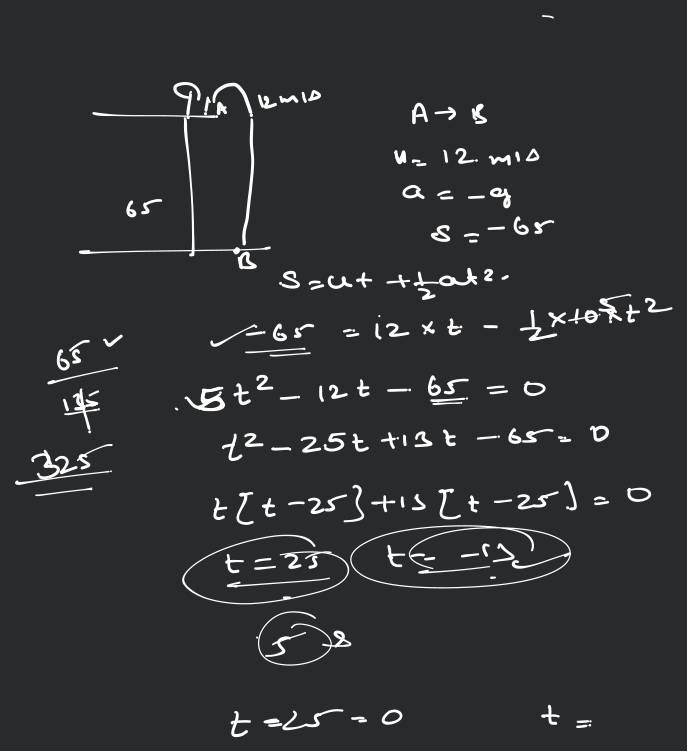 A 12 m/s
65
B
A → B
u = 12 m/s
a = -g
s = -65
S = ut + 1/2 at².
65 ✓
325
-65 = 12 × t - 1/2 × 10 5 × t²
5t² - 12t - 65 = 0
t² - 25t + 13t - 65 = 0
t[t - 25] + 13[t - 25] = 0
t = 25
5 s
t = 25 = 0
t =